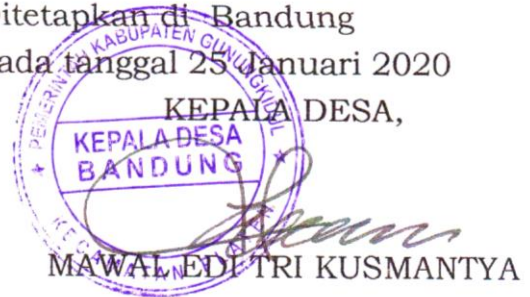 Ditetapkan di Bandung
pada tanggal 25 Januari 2020
KEPALA DESA,
PEMERINTAH KABUPATEN GUNUNGKIDUL
KEPALA DESA
BANDUNG
KECAMATAN
MAWAL EDI TRI KUSMANTYA